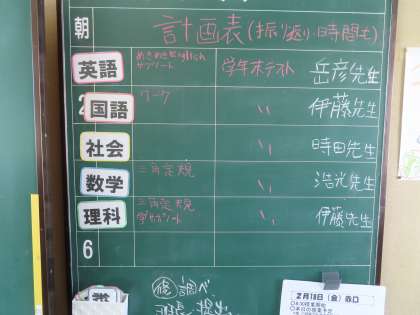 朝 計画表(振り返り・時間も)
英語 めきめきEnglish 学年末テスト 岳彦先生
サブノート
2 国語 ワーク 〃 伊藤先生
社会 〃 時田先生
数学 三角定規 〃 浩光先生
理科 三角定規 〃 伊藤先生
学サブノート
6
調べ
提出
2月18日(金)